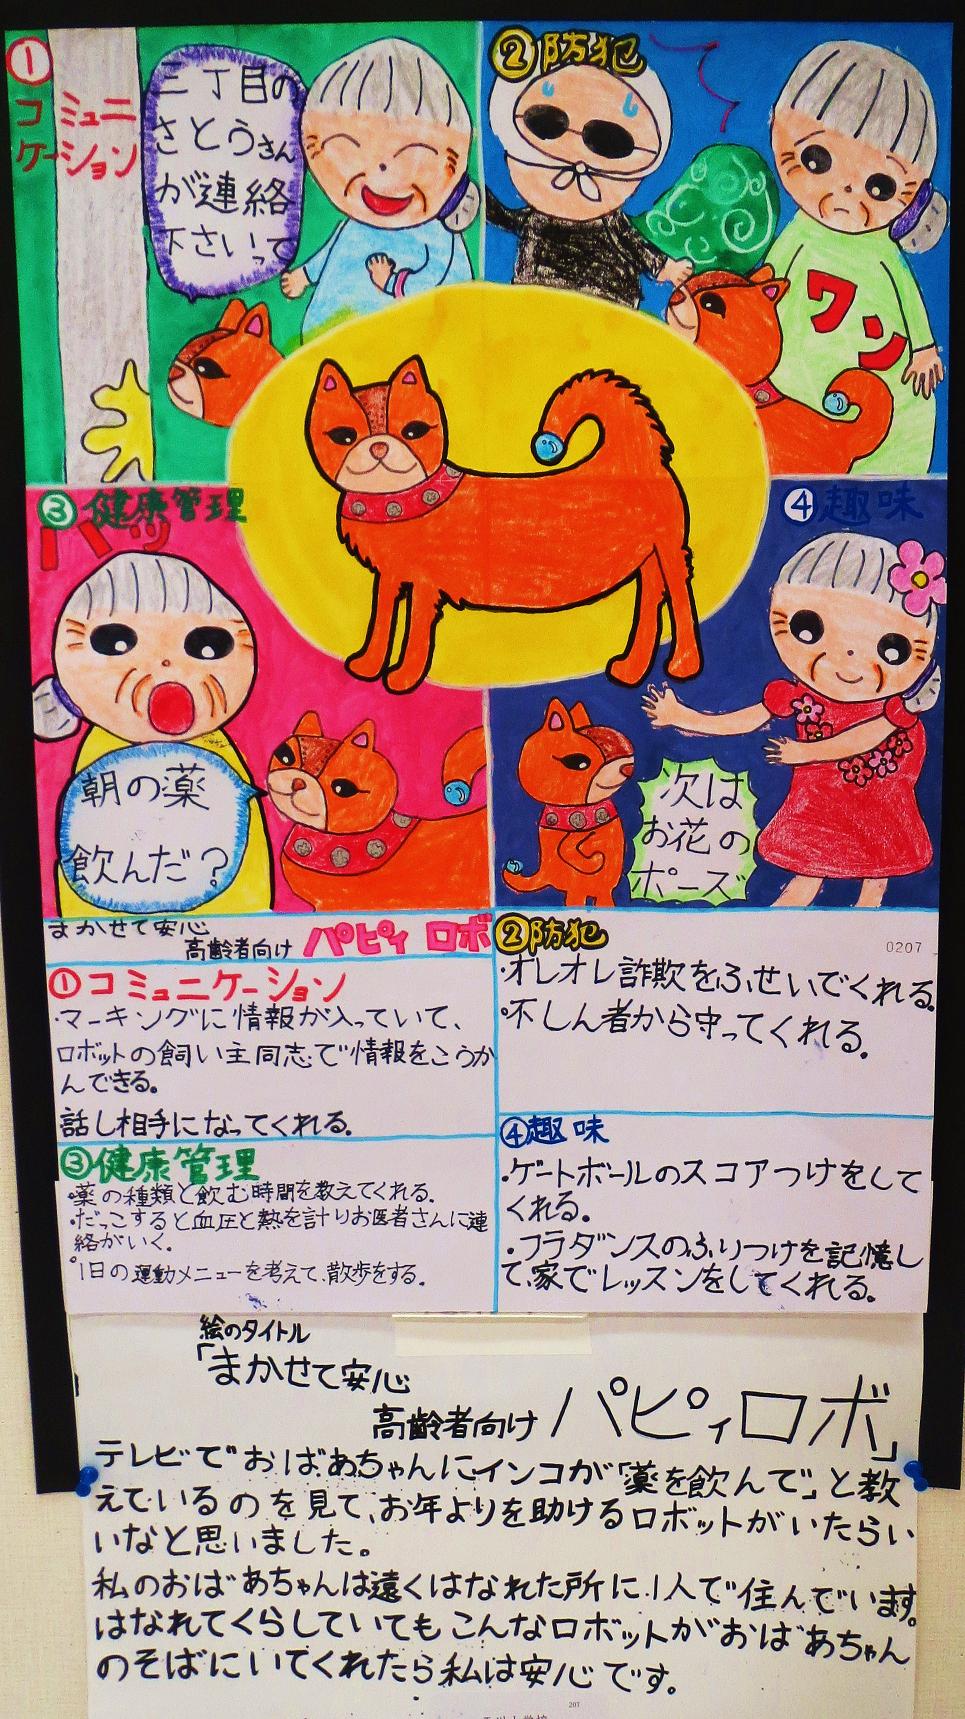 ①
コミュニ
ケーション
三丁目の
さとうさん
が連絡
下さいって
②防犯
ワン
③健康管理
ハッ
朝の薬
飲んだ?
④趣味
次は
お花の
ポーズ
まかせて安心
高齢者向け パピィ ロボ
①コミュニケーション
・マーキングに情報が入っていて、
ロボットの飼い主同志で情報をこうか
んできる。
話し相手になってくれる。
②防犯
0207
・オレオレ詐欺をふせいでくれる。
・不しん者から守ってくれる。
③健康管理
・薬の種類と飲む時間を教えてくれる。
・だっこすると血圧と熱を計りお医者さんに連
絡がいく。
・1日の運動メニューを考えて、散歩をする。
④趣味
・ゲートボールのスコアつけをして
くれる。
・フラダンスのふりつけを記憶し
て、家でレッスンをしてくれる。
絵のタイトル
「まかせて安心
高齢者向け パピィロボ」
テレビでおばあちゃんにインコが「薬を飲んで」と教
えているのを見て、お年よりを助けるロボットがいたらい
いなと思いました。
私のおばあちゃんは遠くはなれた所に、1人で住んでいます。
はなれてくらしていてもこんなロボットがおばあちゃん
のそばにいてくれたら私は安心です。
207